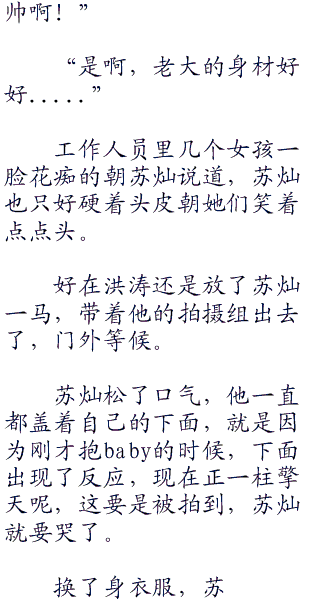 帅啊！”
“是啊，老大的身材好
好.....”
工作人员里几个女孩一
脸花痴的朝苏灿说道，苏灿
也只好硬着头皮朝她们笑着
点点头。
好在洪涛还是放了苏灿
一马，带着他的拍摄组出去
了，门外等候。
苏灿松了口气，他一直
都盖着自己的下面，就是因
为刚才抱baby的时候，下面
出现了反应，现在正一柱擎
天呢，这要是被拍到，苏灿
就要哭了。
换了身衣服，苏